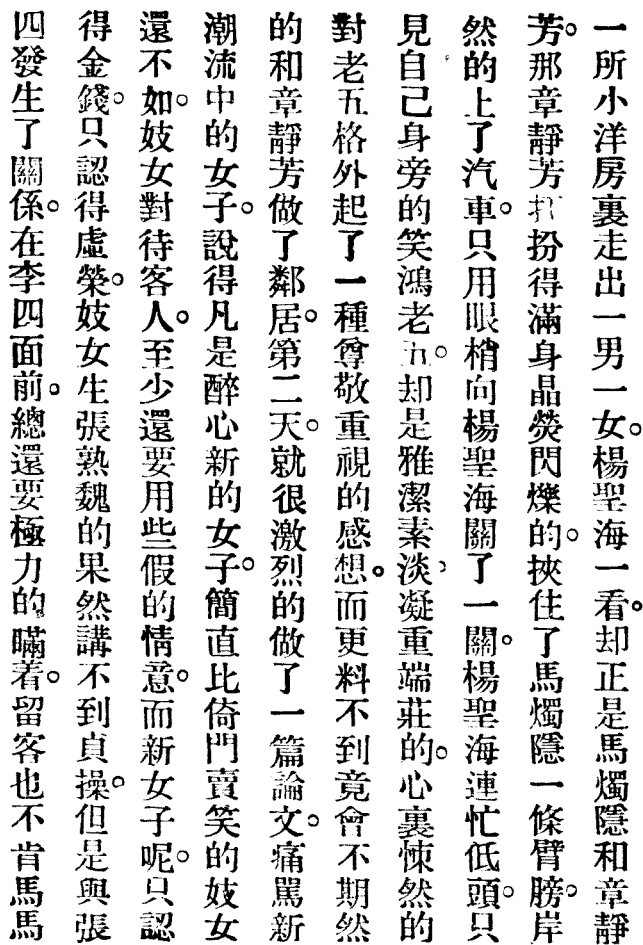 一所小洋房裏走出一男一女。楊聖海一看。却正是馬燭隱和章靜
芳。那章靜芳打扮得滿身晶熒閃爍的。挾住了馬燭隱一條臂膀。岸
然的上了汽車。只用眼梢向楊聖海關了一關。楊聖海連忙低頭。只
見自己身旁的笑鴻老五。却是雅潔素淡、凝重端莊的。心裏悚然的
對老五格外起了一種尊敬重視的感想。而更料不到竟會不期然
的和章靜芳做了鄰居。第二天。就很激烈的做了一篇論文。痛罵新
潮流中的女子。說得凡是醉心新的女子。簡直比倚門賣笑的妓女
還不如。妓女對待客人。至少還要用些假的情意。而新女子呢。只認
得金錢。只認得虛榮。妓女生張熟魏的果然講不到貞操。但是與張
四發生了關係。在李四面前。總還要極力的瞞着。留客也不肯馬馬